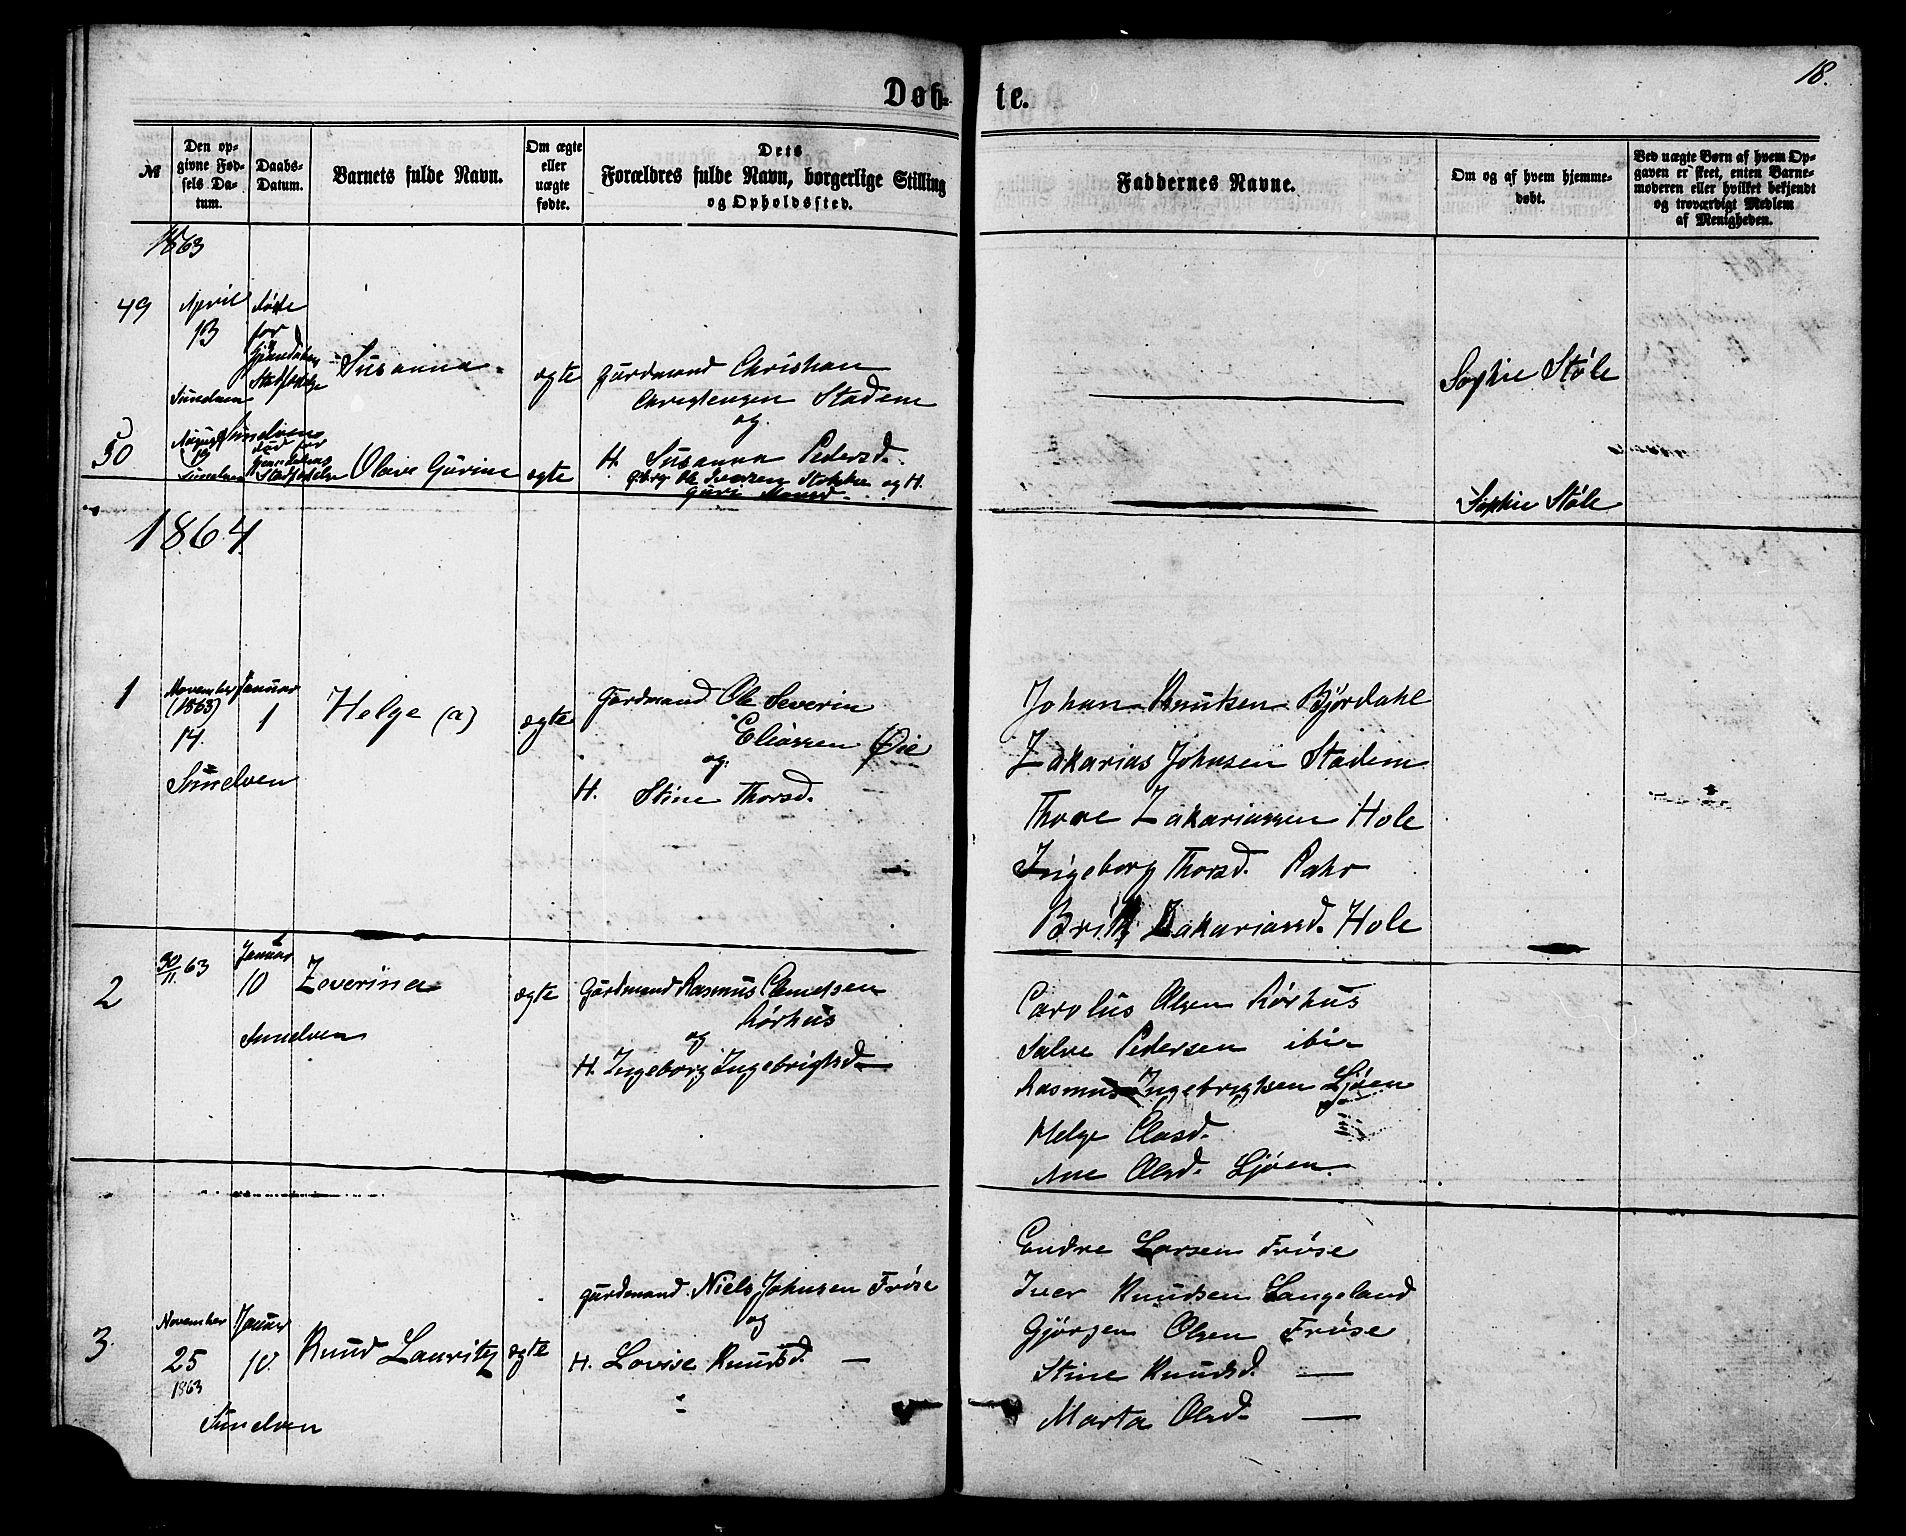 18.
Døb- te.
№
Den op-
givne Fød-
sels Da-
tum.
Daabs-
Datum.
Barnets fulde Navn.
Om ægte
eller
uægte
fødte.
Dets
Forældres fulde Navn, borgerlige Stilling
og Opholdssted.
Faddernes Navne.
Om og af hvem hjemme-
døbt.
Ved uægte Børn af hvem Op-
gaven er skeet, enten Barne-
moderen eller hvilket bekjendt
og troværdigt Medlem
af Menigheden.
1863
49
April
13
Sunelven
døde
for
Stadfæstelse
Susanna
ægte
Gardmand Christian
Christensen Stadem
og
H. Susanna Pedersd.
Sophie Støle
50
August
19
Sunelven
død for
Stadfæstelse
Olave Gurine
ægte
Ole Iversen Stokke og H.
Guri Monsd.
Sophie Støle
1864
1
November
(1863)
14.
Sunelven
Januar
1
Helge (a)
ægte
Gardmand Ole Severin
Eliassen Øie
og
H. Stine Thorsd. —
Johan Knutsen Bjørdahl
Zakarias Johnsen Stadem
Thore Zakariassen Hole
Ingeborg Thorsd. Rahr
Brith Zakariasd. Hole
2
30/11 63
Januar
10
Sunelven
Zeverina
ægte
Gardmand Rasmus Clemetsen
Rørhus
og
H. Ingeborg Ingebrigtsd. —
Carolus Olsen Rørhus
Salve Pedersen ibi
Rasmus Ingebrigtsen Ljøen
Helge Clasd.
Ane Olsd. Ljøen
3.
November
25
1863
Sunelven
Januar
10.
Knud Lauritz
ægte
Gardmand Niels Johnsen Frøse
og
H. Lovise Knudsd. —
Endre Larsen Frøse
Iver Knudsen Langeland
Gjørgen Olsen Frøse
Stine Knudsd. —
Marta Olsd. —